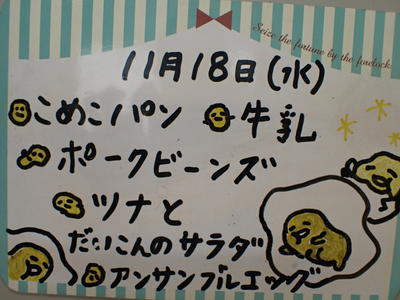 Seize the fortune by the forelock.
11月18日(水)
こめこパン 牛乳
ポークビーンズ
ツナと
だいこんのサラダ
アンサンブルエッグ